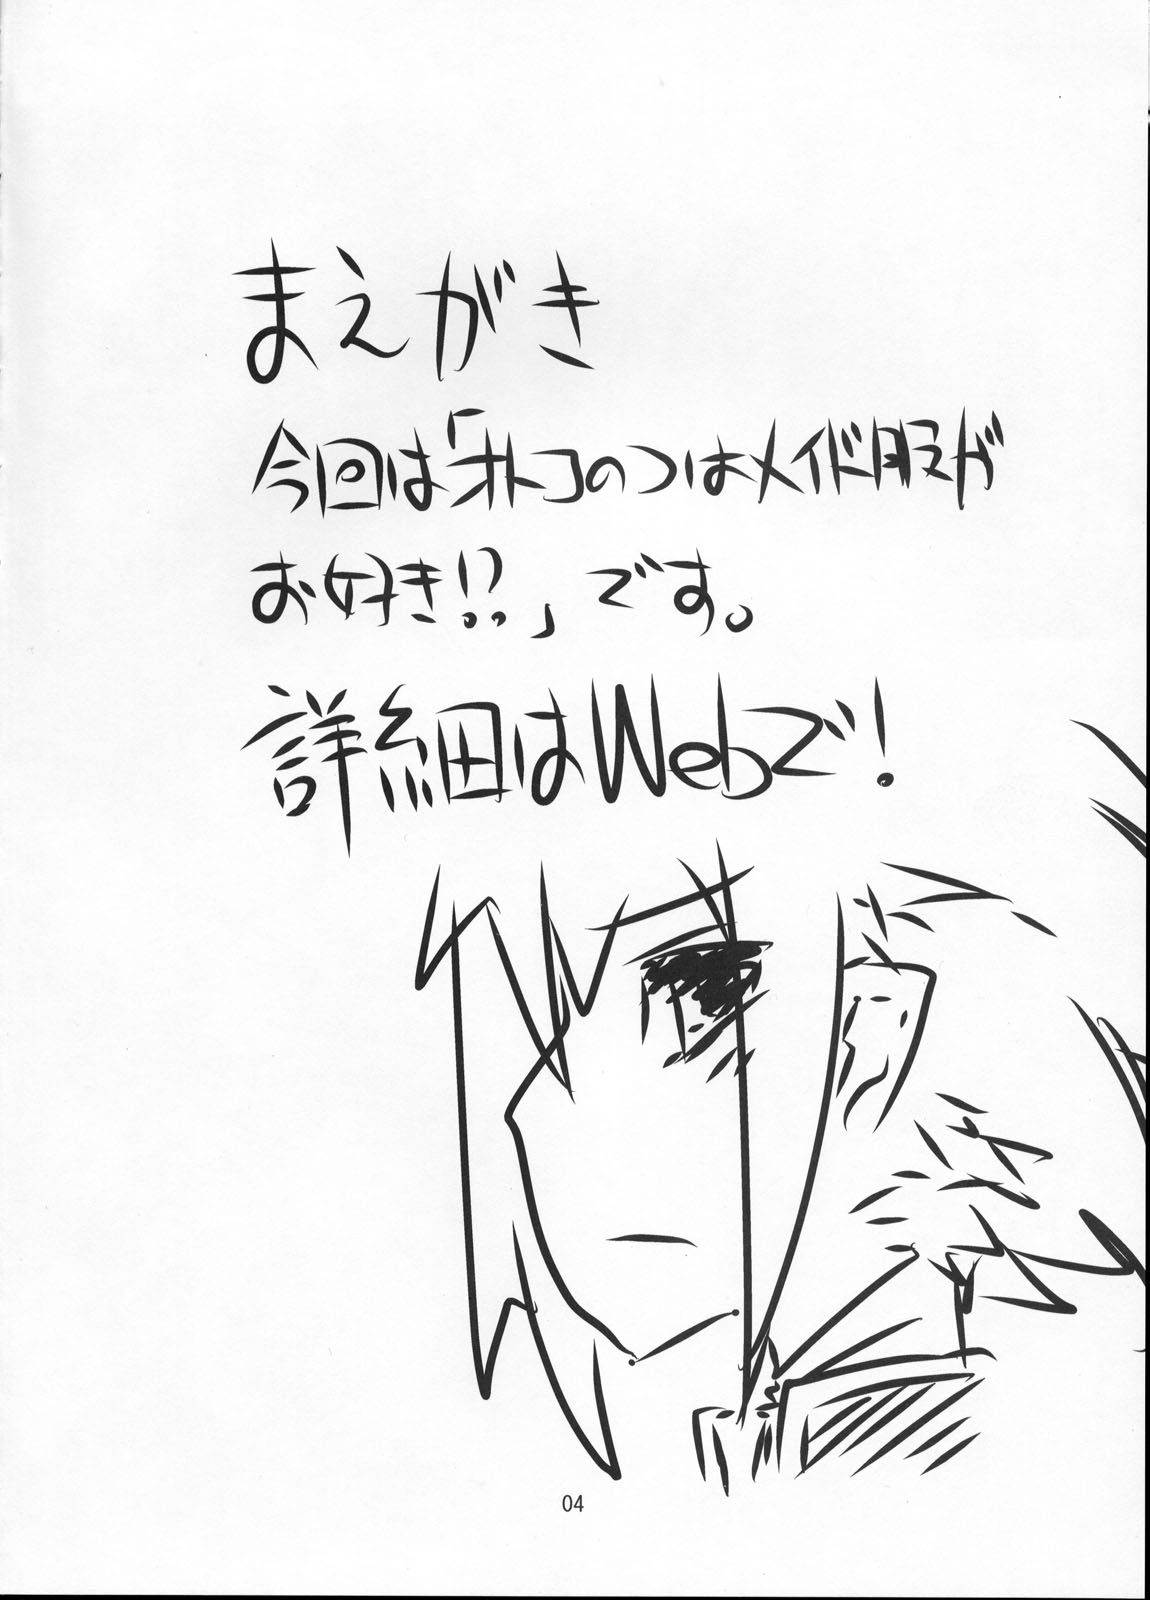 まえがき
今回は「オトコのコはメイド服が
お好き!?」です。
詳細はWebで！
04